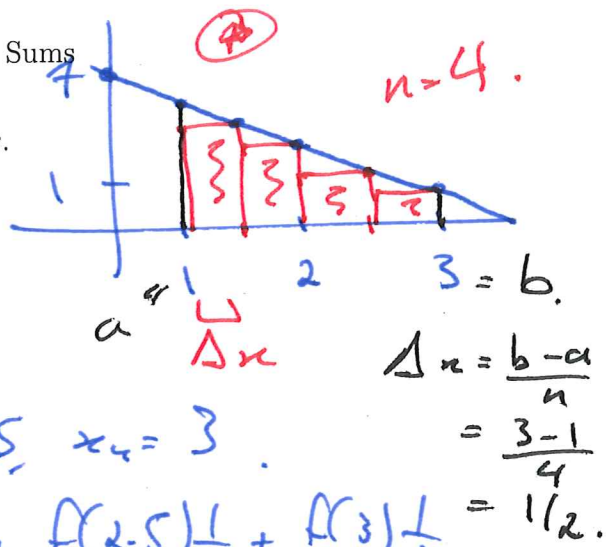 Sums
n=4.
1
1 2 3 = b.
a =
Δx
Δx = b-a / n
= 3-1 / 4
5, x₄ = 3.
f(2.5) 1 + f(3) 1
= 1/2.